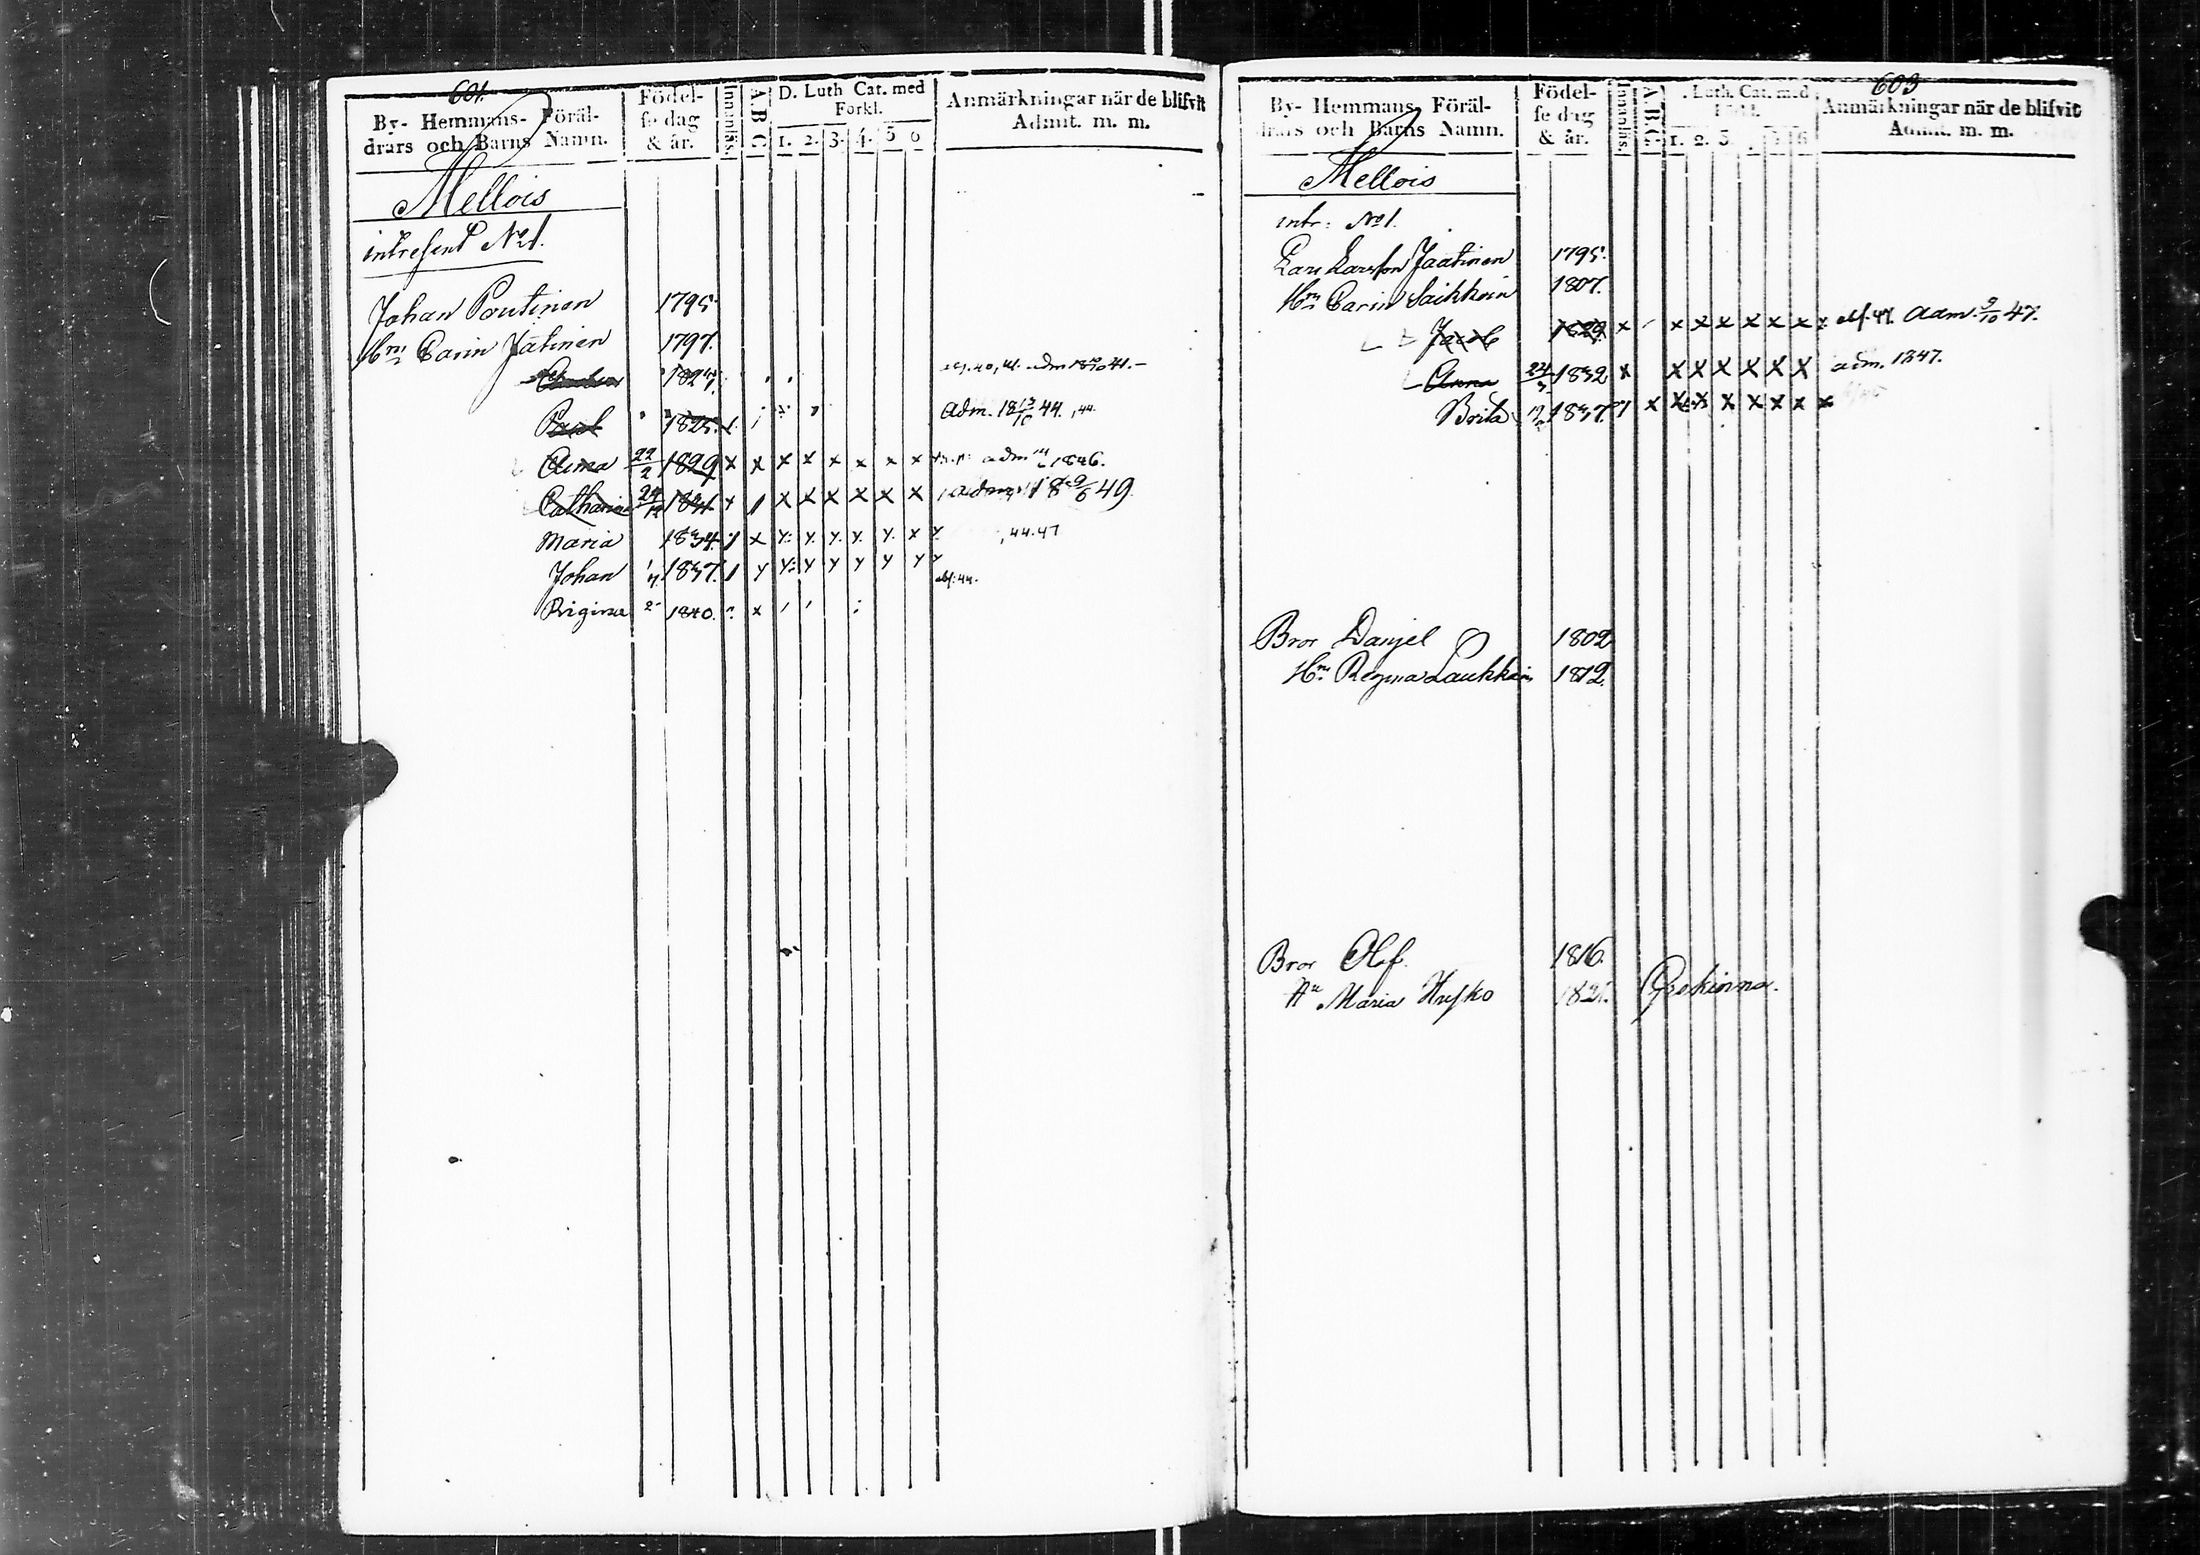 601.
By- Hemmans- Föräl-
drars och Barns Namn.
Födel-
se dag
& år.
Innanläs
A.B.C
D. Luth Cat. med
Forkl.
1. 2. 3. 4. 5 6
Anmärkningar när de blifvit
Admit. m. m.
Mellois
intresent No 1.
Johan Poutinen 1795
Hru Carin Jätinen 1797.
182
Paul 1825. adm. 18 13/10 44. , 44.
Anna 22/2 1829 x x x x x x x x adm 1846.
Catharina 24/12 1831 x x x x x x adm 18 9/6 49
Maria 1834. x , 44.47
Johan 1837.
Rigina 1840. x
603
By- Hemmans Föräl-
drars och Barns Namn.
Födel-
se dag
& år.
Innanläs
A.B.C
. Luth. Cat. med
1. 2. 3 6
Anmärkningar när de blifvit
Admit. m. m.
Mellois
intr: No 1.
Lars Larsson Jaatinen 1795.
Hru Carin Saikkoin 1807.
Jacob 1829. x x x x x x x adm. 9/10 47.
Anna 24/3 1832 x x x x x x x adm. 1847.
Brita 1837. x x x x x x
Bror Danjel 1802
Hru Regina Laukkain 1812.
Bror Olof. 1816.
Hu Maria Husko 182